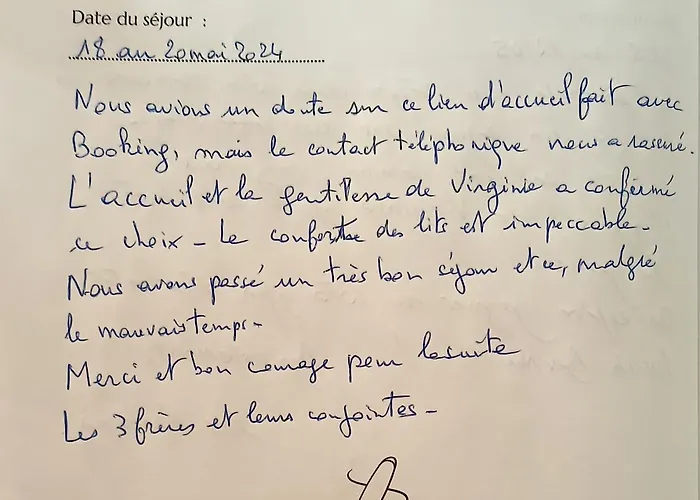 Date du séjour :
18 au 20 mai 2024
Nous avions un doute sur ce lien d'accueil fait avec
Booking, mais le contact téléphonique nous a rassuré.
L'accueil et la gentillesse de Virginie a confirmé
ce choix - Le confort des lits est impeccable -
Nous avons passé un très bon séjour et ce, malgré
le mauvais temps -
Merci et bon courage pour la suite
Les 3 frères et leurs conjointes -